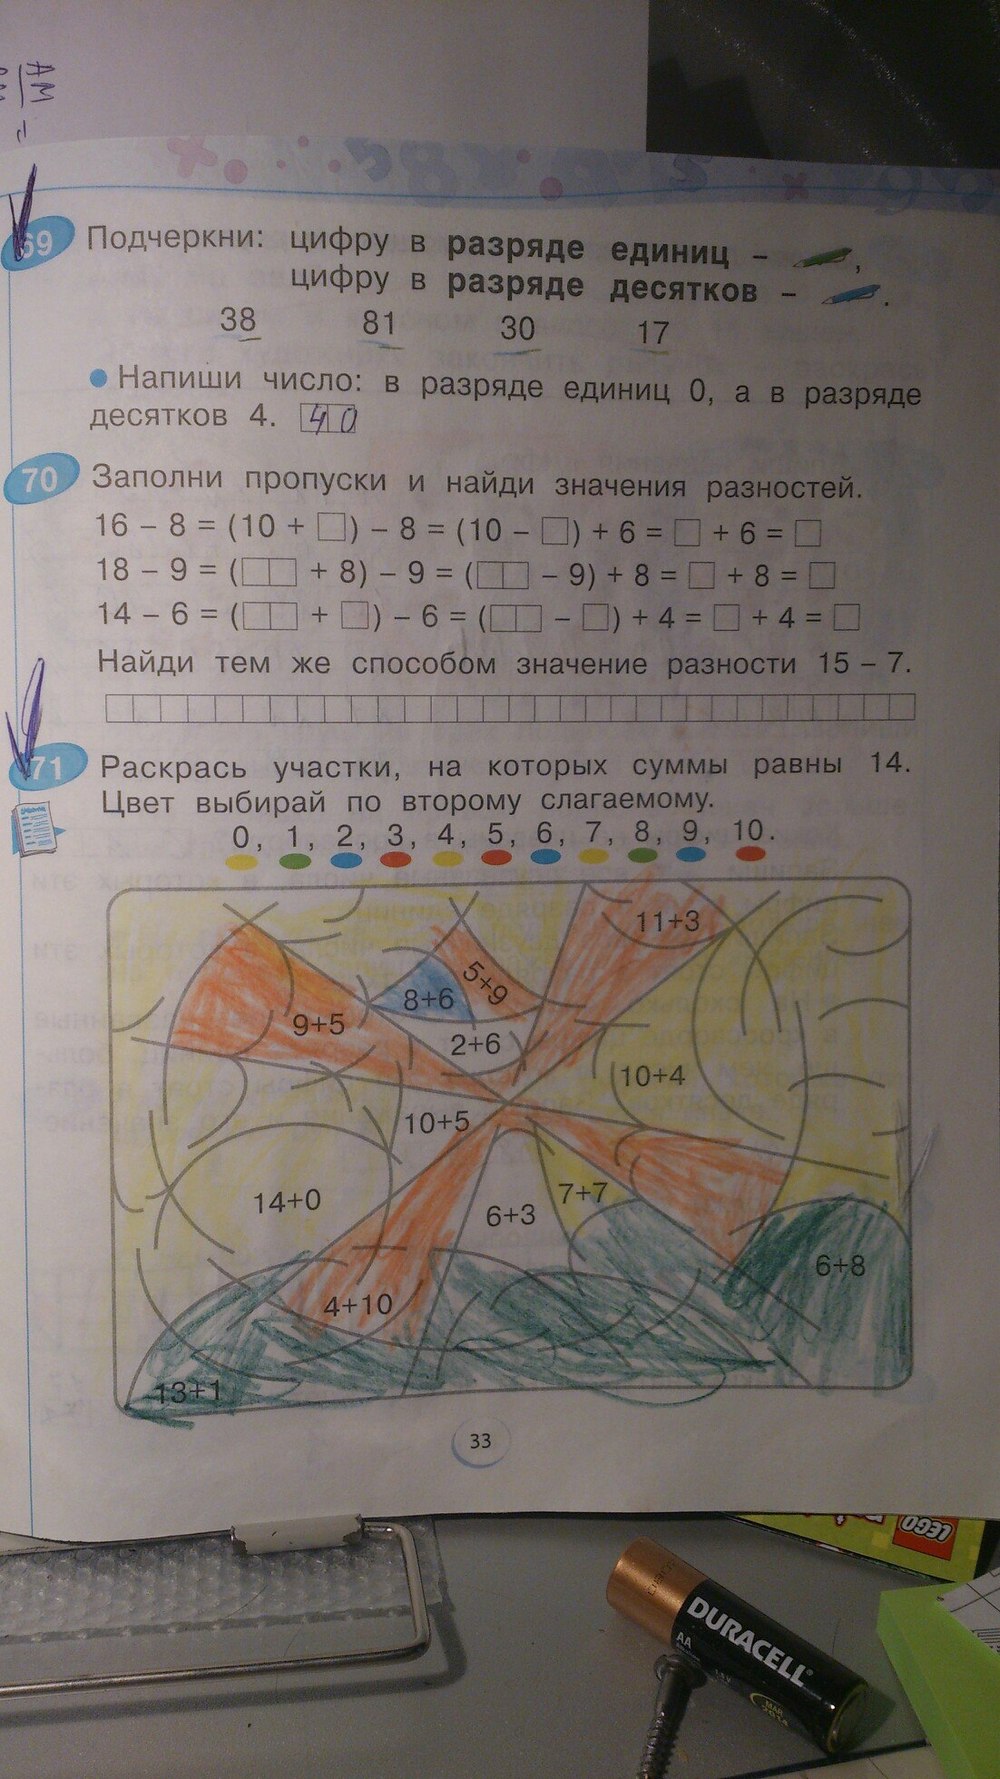 АМ
69 Подчеркни: цифру в разряде единиц – ,
цифру в разряде десятков – .
38 81 30 17
Напиши число: в разряде единиц 0, а в разряде
десятков 4. 40
70 Заполни пропуски и найди значения разностей.
16 – 8 = (10 + □) – 8 = (10 – □) + 6 = □ + 6 = □
18 – 9 = (□□ + 8) – 9 = (□□ – 9) + 8 = □ + 8 = □
14 – 6 = (□□ + □) – 6 = (□□ – □) + 4 = □ + 4 = □
Найди тем же способом значение разности 15 – 7.
71 Раскрась участки, на которых суммы равны 14.
Цвет выбирай по второму слагаемому.
0, 1, 2, 3, 4, 5, 6, 7, 8, 9, 10.
11+3
5+9
8+6
9+5
2+6
10+4
10+5
14+0
7+7
6+3
6+8
4+10
13+1
33
LEGO
DURACELL
AA